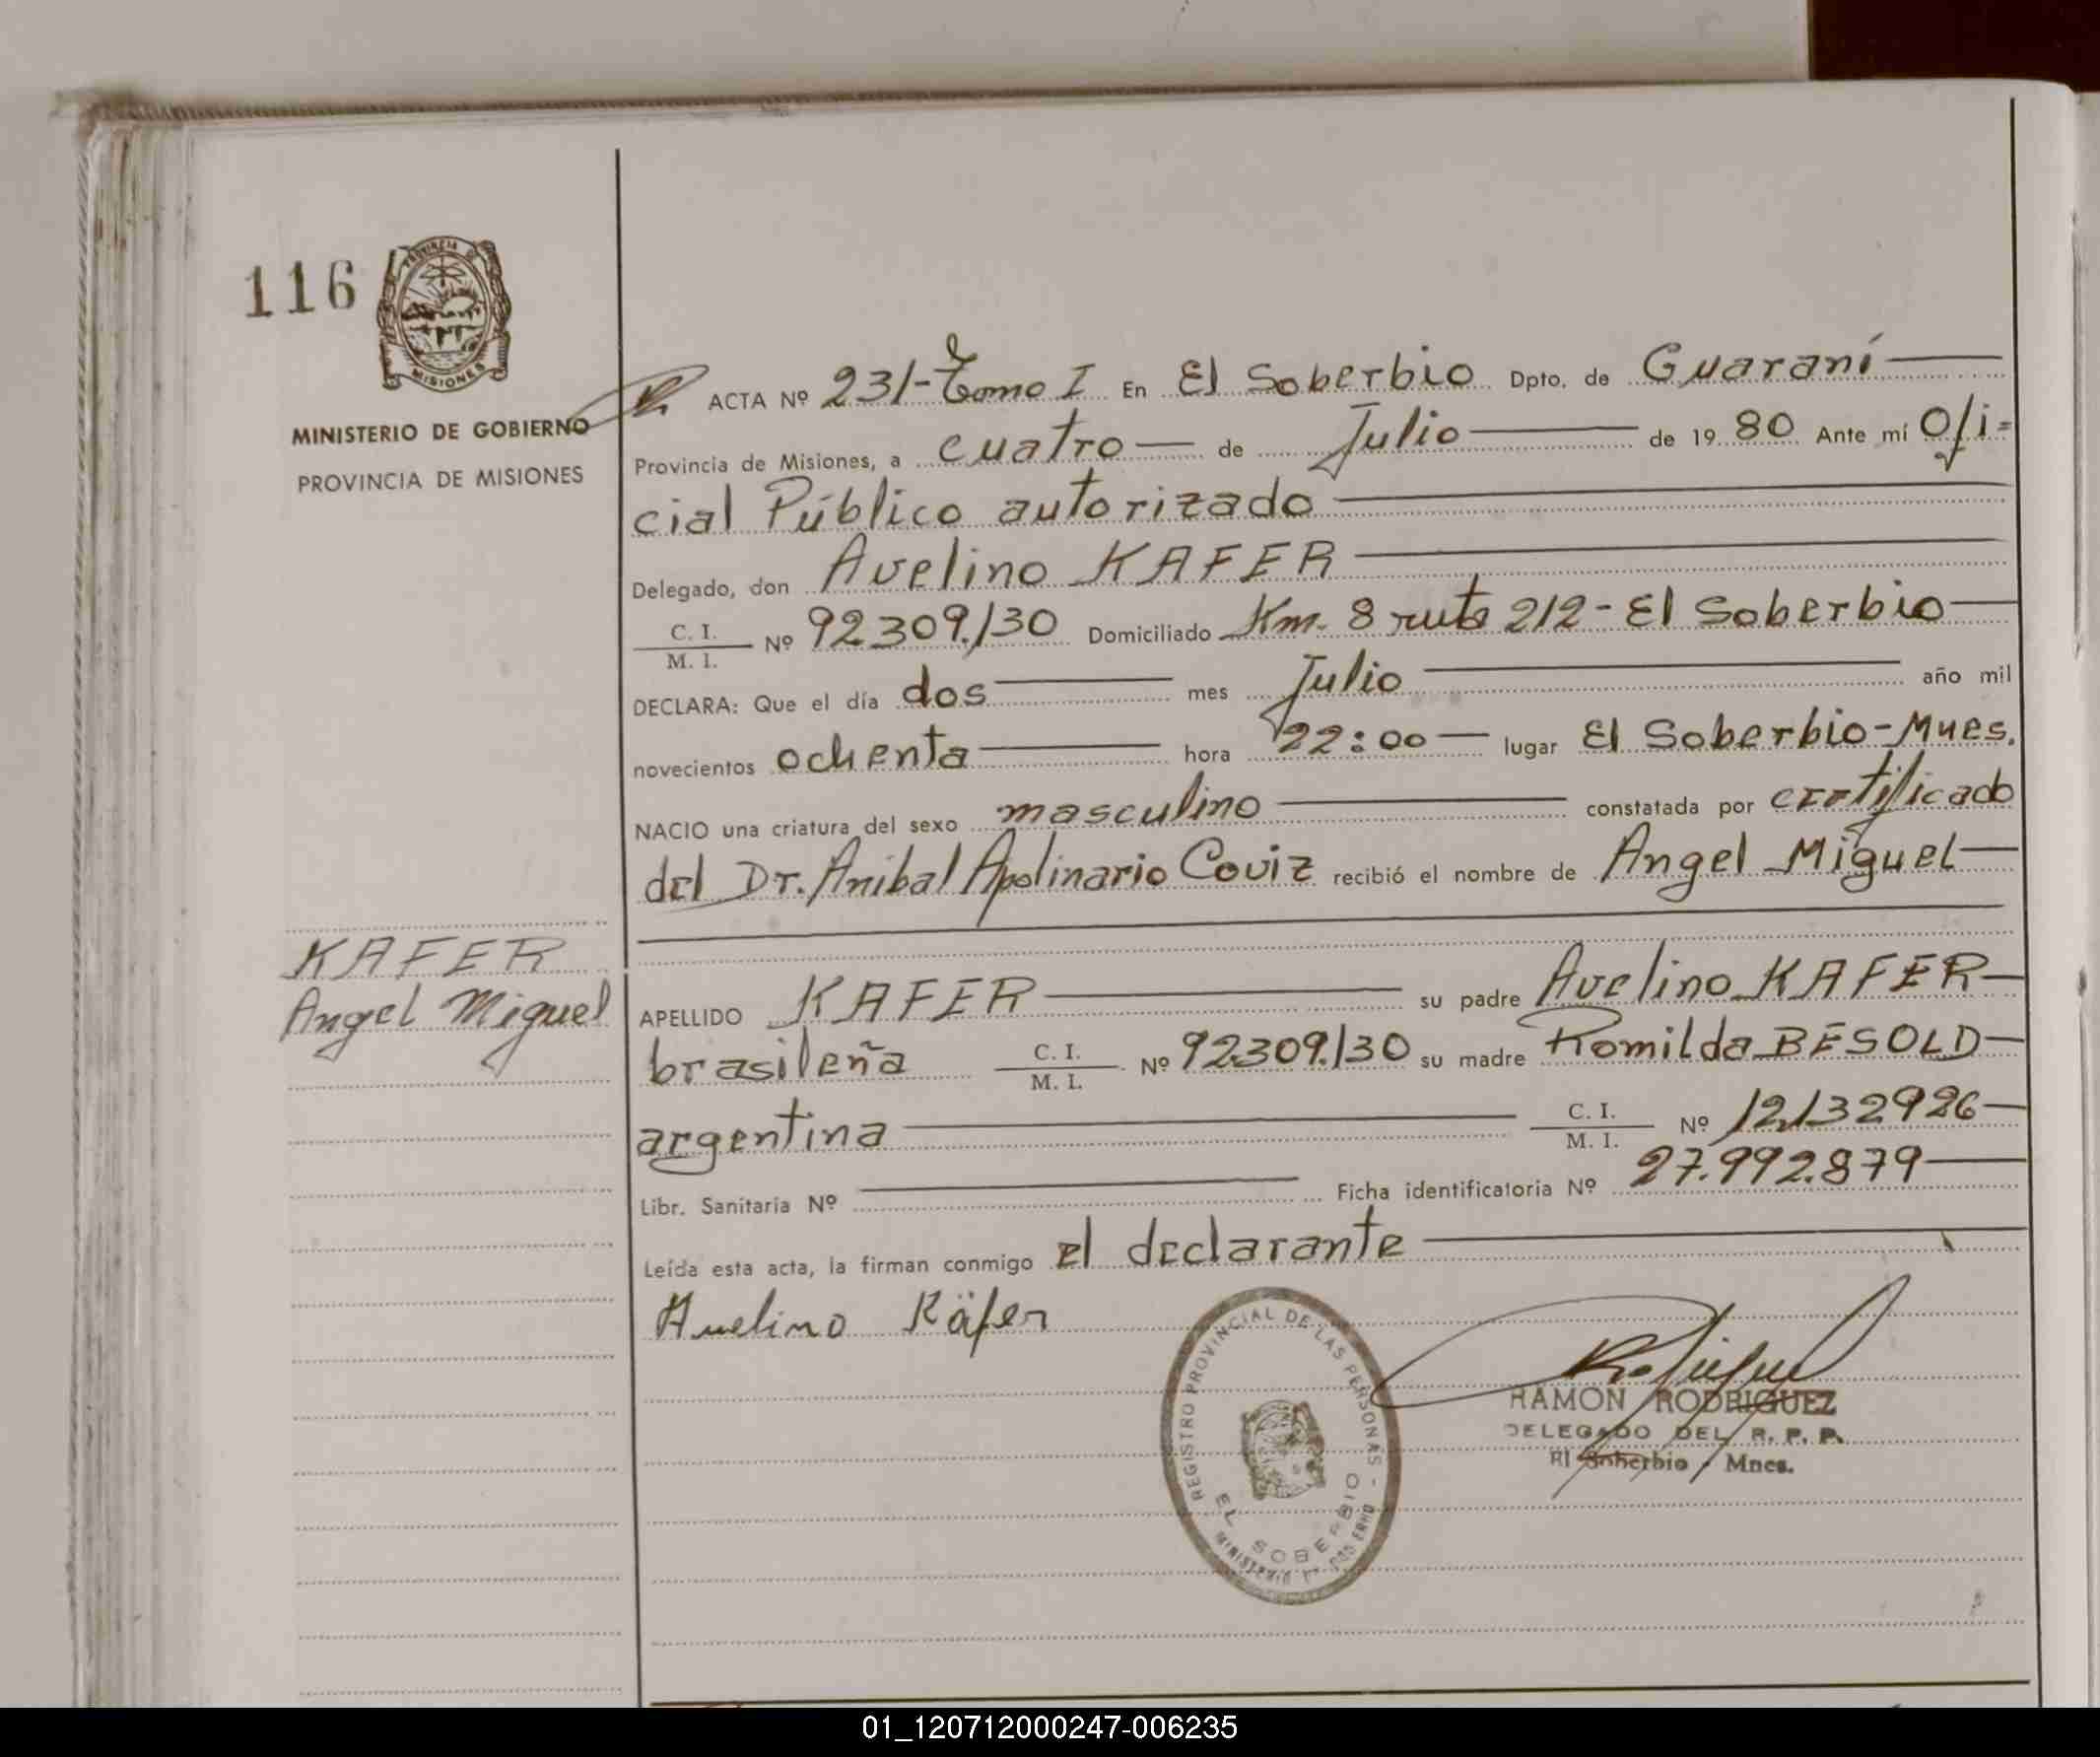 116
PROVINCIA DE
MISIONES
MINISTERIO DE GOBIERNO
PROVINCIA DE MISIONES
ACTA Nº 231-Tomo I En El Soberbio Dpto. de Guaraní
Provincia de Misiones, a cuatro de Julio de 1980 Ante mí Ofi=
cial Público autorizado
Delegado, don Avelino KAFER
C. I.
M. I. Nº 92309.130 Domiciliado Km. 8 ruta 212- El Soberbio
DECLARA: Que el día dos mes Julio año mil
novecientos ochenta hora 22:00 lugar El Soberbio-Mnes.
NACIO una criatura del sexo masculino constatada por certificado
del Dr. Anibal Apolinario Coviz recibió el nombre de Angel Miguel
KAFER
Angel Miguel
APELLIDO KAFER su padre Avelino KAFER
brasileña C. I.
M. I. Nº 92309.130 su madre Romilda BESOLD
argentina C. I.
M. I. Nº 12.132926
Libr. Sanitaria Nº Ficha identificatoria Nº 27.992.879
Leída esta acta, la firman conmigo el declarante
Avelino Käfer
REGISTRO PROVINCIAL DE LAS PERSONAS -
EL SOBERBIO
RAMON RODRIGUEZ
DELEGADO DEL R. P. P.
El Soberbio - Mnes.
01_120712000247-006235